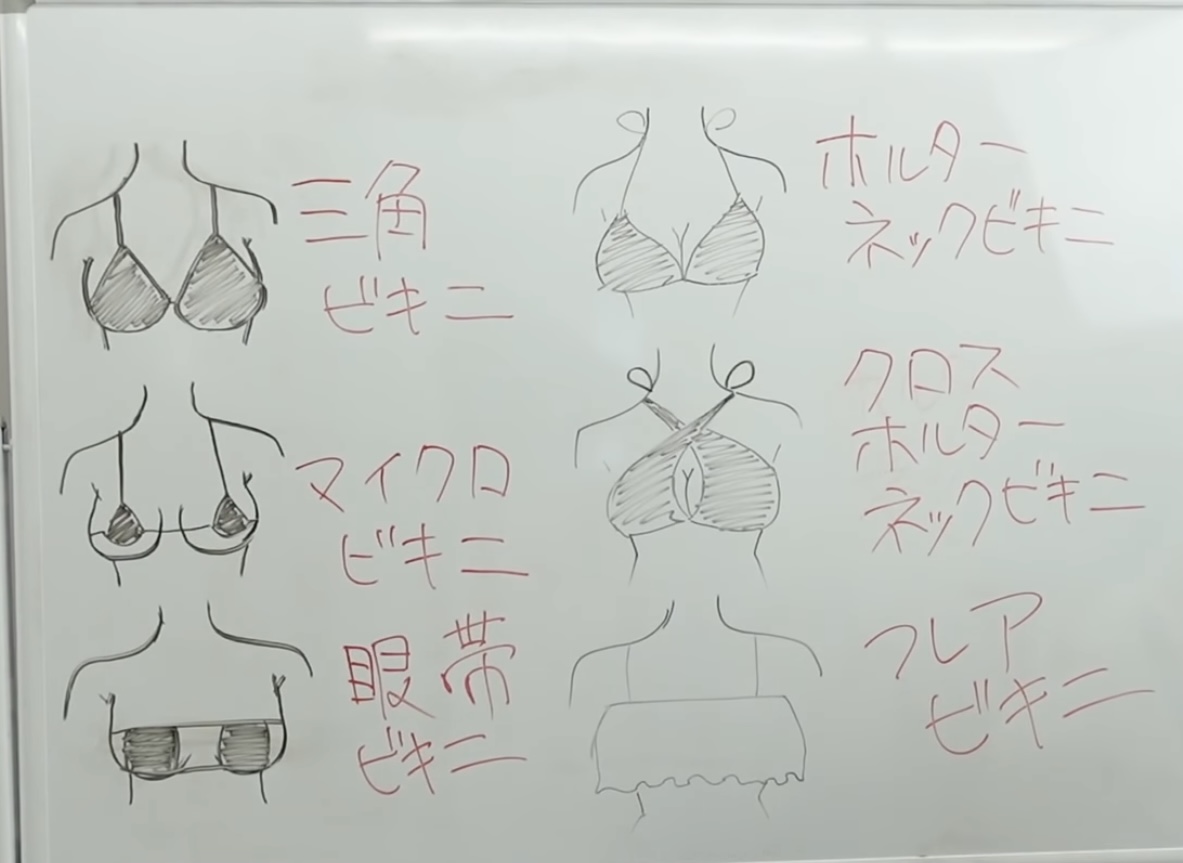 三角
ビキニ
マイクロ
ビキニ
眼帯
ビキニ
ホルター
ネックビキニ
クロス
ホルター
ネックビキニ
フレア
ビキニ